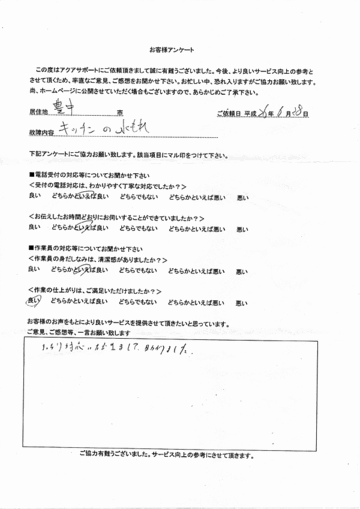 お客様アンケート
この度はアクアサポートにご依頼頂きまして誠に有難うございました。今後、より良いサービス向上の参考と
させて頂くため、率直なご意見、ご感想をお聞かせ下さい。お忙しい中、恐れ入りますがご協力お願い致します。
尚、ホームページに公開させていただく場合もございますので、あらかじめご了承下さい。
居住地 豊中 市 ご依頼日 平成 26年 8月 28日
故障内容 キッチンの水もれ
下記アンケートにご協力お願い致します。該当項目にマル印をつけて下さい。
■電話受付の対応等についてお聞かせ下さい
<受付の電話対応は、わかりやすく丁寧な対応でしたか?>
良い どちらかといえば良い どちらでもない どちらかといえば悪い 悪い
<お伝えしたお時間どおりにお伺いすることができていましたか?>
良い どちらかといえば良い どちらでもない どちらかといえば悪い 悪い
■作業員の対応等についてお聞かせ下さい
<作業員の身だしなみは、清潔感がありましたか?>
良い どちらかといえば良い どちらでもない どちらかといえば悪い 悪い
<作業の仕上がりは、ご満足いただけましたか?>
良い どちらかといえば良い どちらでもない どちらかといえば悪い 悪い
お客様のお声をもとにより良いサービスを提供させて頂きたいと思っています。
ご意見、ご感想等、一言お願い致します
対応 助かりました。
ご協力有難うございました。サービス向上の参考にさせて頂きます。